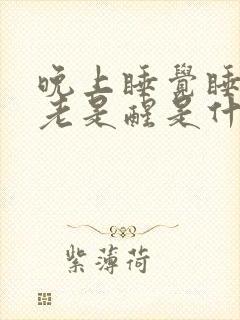 晚上睡覺睡
老是醒是什
紫薄荷